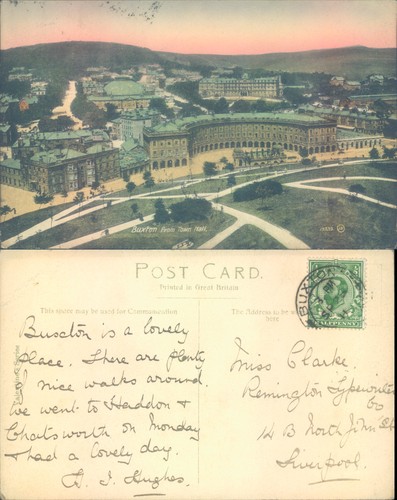 Buxton from Town Hall.
POST CARD.
Printed in Great Britain
This space may be used for Communication
The Address to be
here
BUXTON
Buxton is a lovely
place. There are plenty
of nice walks around.
we went to Haddon &
Chatsworth on Monday
& had a lovely day.
H. J. Hughes.
Miss Clarke.
Remington Typewriter
Co
14 B North John St
Liverpool.